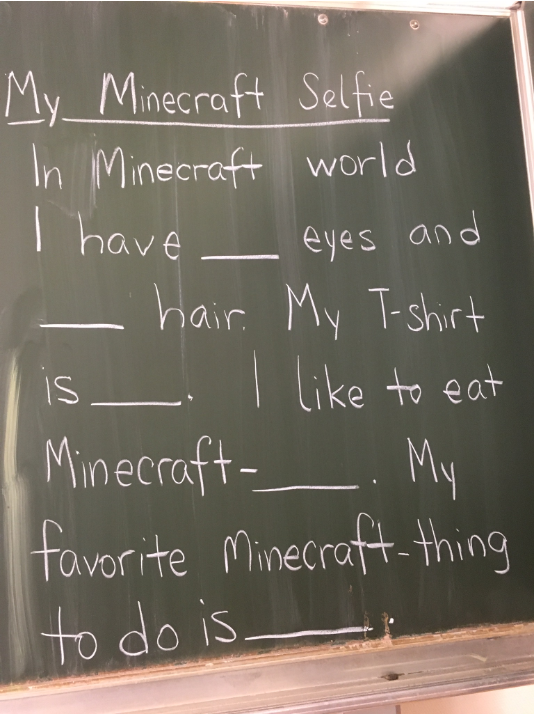 My Minecraft Selfie
In Minecraft world
I have ___ eyes and
___ hair. My T-shirt
is ___. I like to eat
Minecraft-___. My
favorite Minecraft-thing
to do is ___.